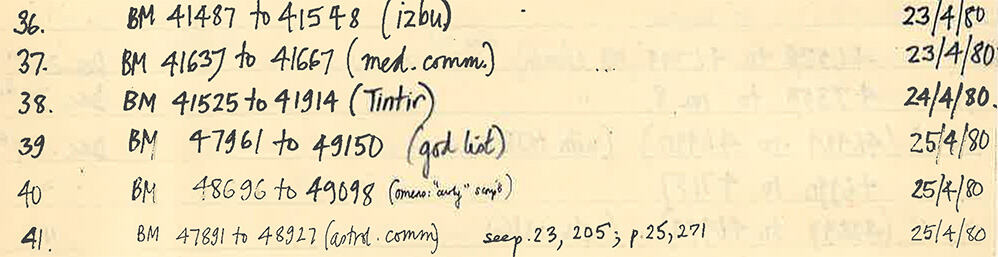 36. BM 41487 to 41548 (izbu) 23/4/80
37. BM 41637 to 41667 (med. comm.) 23/4/80
38. BM 41525 to 41914 (Tintir) 24/4/80.
39 BM 47961 to 49150 (god list) 25/4/80
40 BM 48696 to 49098 (omens: "curly" script) 25/4/80
41. BM 47891 to 48927 (astrol. comm) see p. 23, 205; p. 25, 271 25/4/80